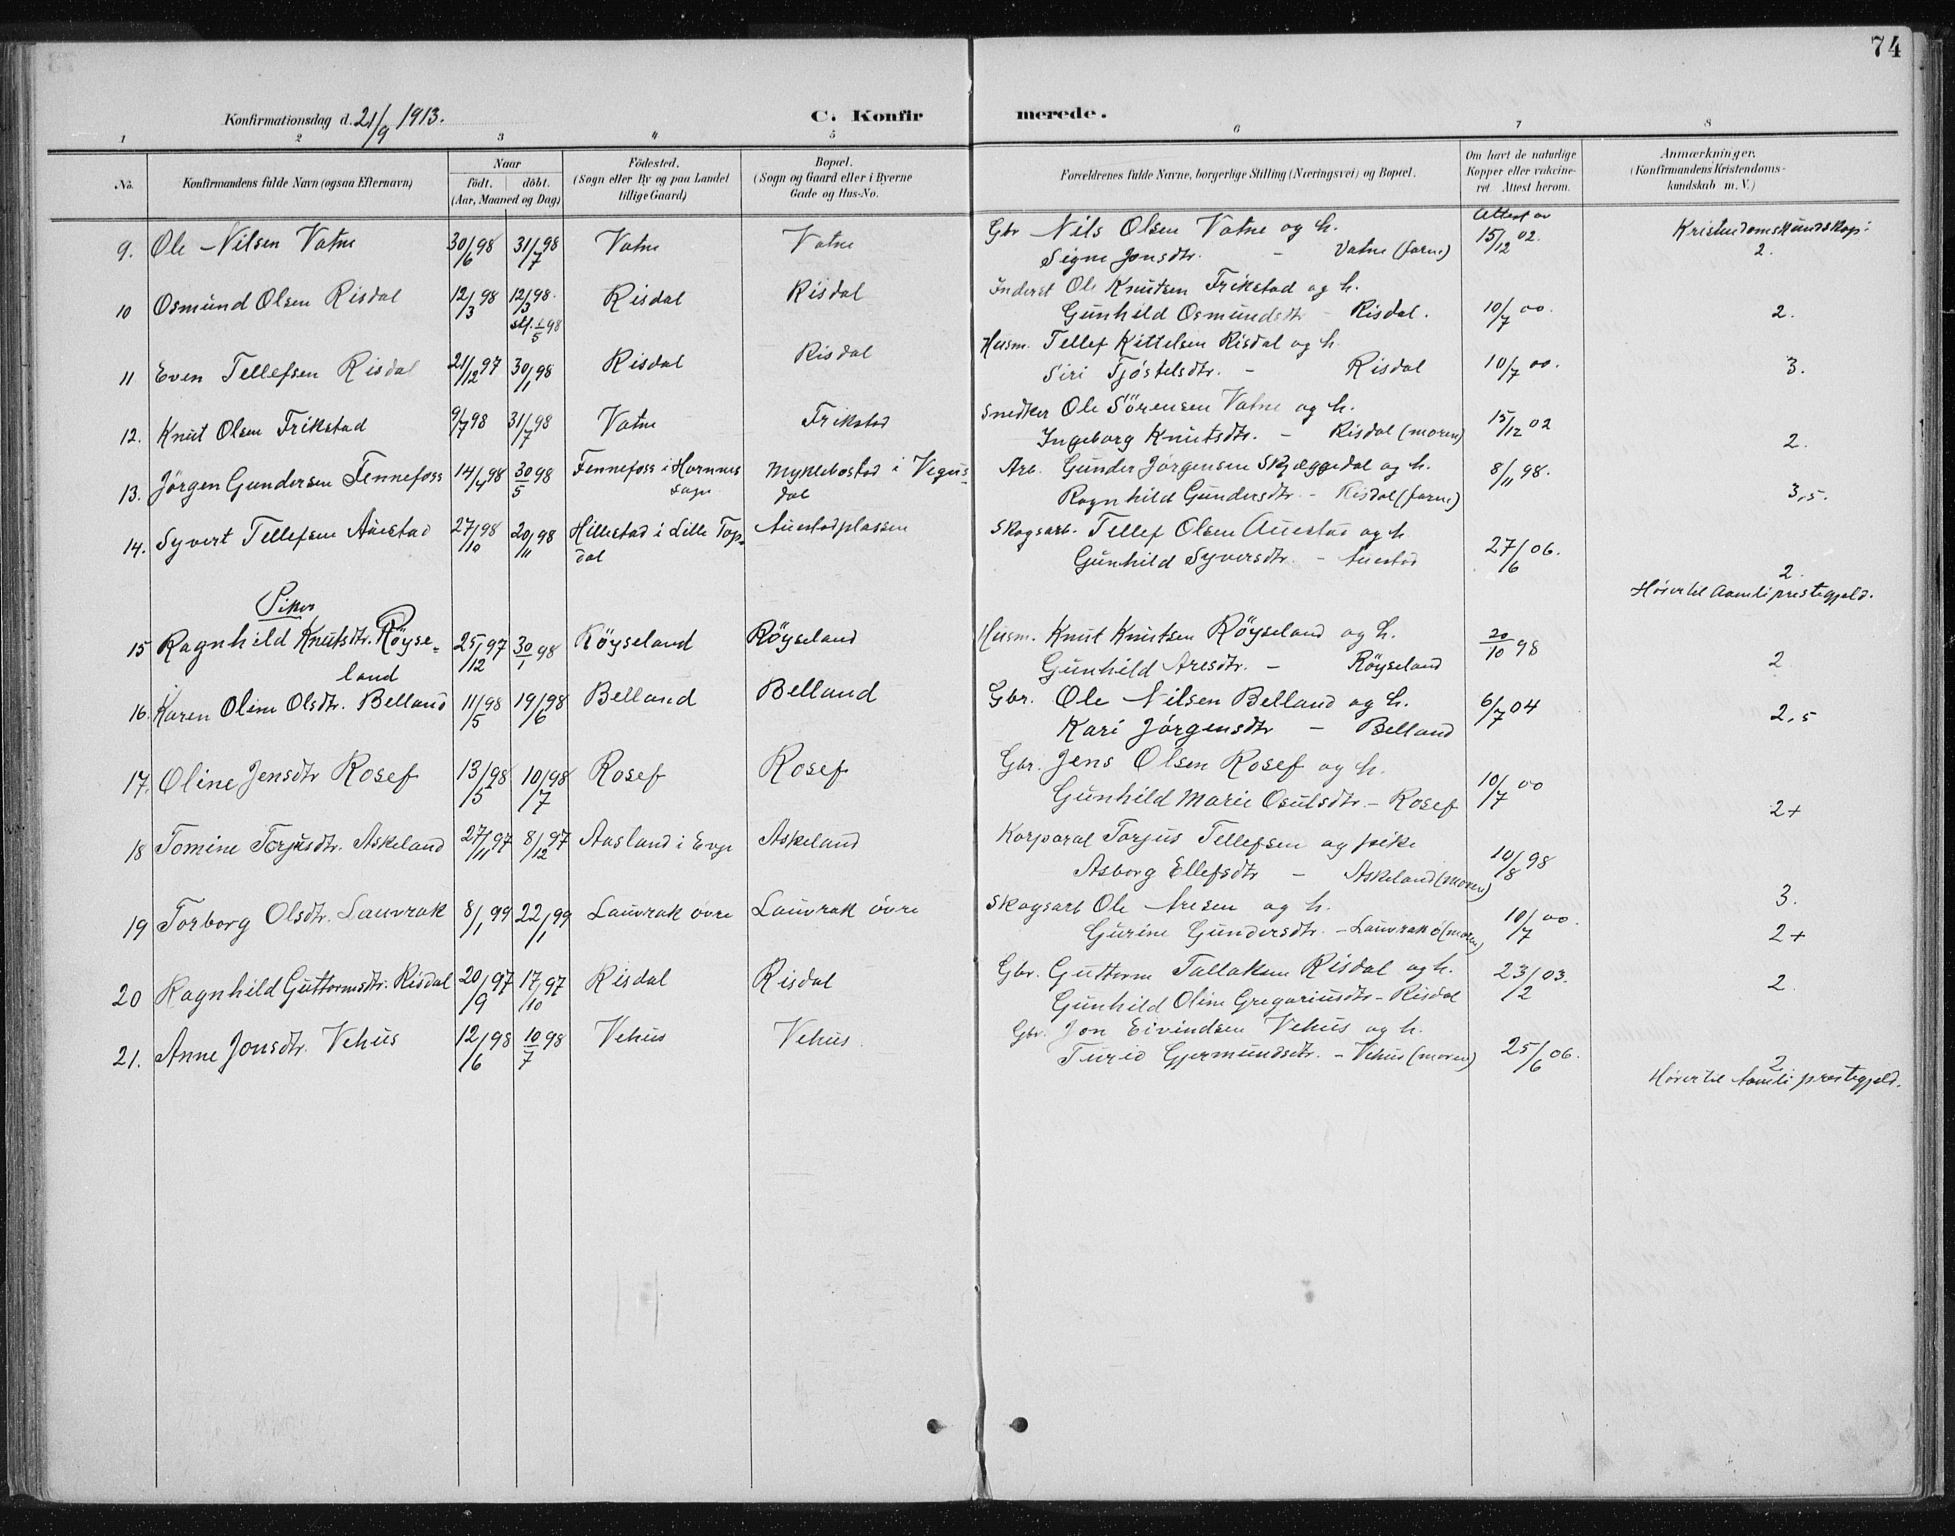 74
Konfirmationsdag d. 21/9 1913. C. Konfirmerede.
1 2 3 4 5 6 7 8
No. Konfirmandens fulde Navn (ogsaa Efternavn) Naar födt. döbt. (Aar, Maaned og Dag) Födested. (Sogn eller By og paa Landet tillige Gaard) Bopæl. (Sogn og Gaard eller i Byerne Gade og Hus-No. Forældrenes fulde Navne, borgerlige Stilling (Næringsvei) og Bopæl. Om havt de naturlige Kopper eller vakcineret. Attest herom. Anmærkninger. (Konfirmandens Kristendomskundskab m. V.)
9. Ole Nilsen Vatne 30/6 98 31/7 98 Vatne Vatne Gbr Nils Olsen Vatne og h. Attest av 15/12 02. Kristendomskundskap:
Signe Jonsdtr. - Vatne (farne) 2.
10 Osmund Olsen Risdal 12/3 98 12/3 98. stf. 1/5 98 Risdal Risdal Inderst Ole Knutsen Frikstad og h.
Gunhild Osmundsdtr - Risdal. 10/7 00. 2.
11 Even Tellefsen Risdal 21/12 97 30/1 98 Risdal Risdal Husm. Tellef Kittelsen Risdal og h.
Siri Tjöstelsdtr. - Risdal 10/7 00. 3.
12. Knut Olsen Frikstad 9/7 98 31/7 98 Vatne Frikstad Snedker Ole Sörensen Vatne og h.
Ingeborg Knutsdtr. - Risdal (moren) 15/12 02 2.
13. Jörgen Gundersen Fennefoss 14/4 98 30/5 98 Fennefoss i Hornnes sogn Myklebostad i Vegusdal Arb. Gunder Jörgensen Skjæggedal og h. 8/11 98.
Ragnhild Gundersdtr. - Risdal (farne) 3,5.
14. Syvert Tellefsen Auestad 27/10 98 20/11 98 Hillestad i Lille Topdal Auestadplassen Skogsarb. Tellef Olsen Auestad og h
Gunhild Syversdtr. - Auestad 27/6 06. 2.
Hører til Aamli prestegjeld.
Piker
15 Ragnhild Knutsdtr. Röyseland 25/12 97 30/1 98 Röyseland Röyseland Husm. Knut Knutsen Röyseland og h. 20/10 98
Gunhild Aresdtr. - Röyseland 2
16. Karen Oline Olsdtr. Belland 11/5 98 19/6 98 Belland Belland Gbr. Ole Nilsen Belland og h. 6/7 04
Kari Jörgensdtr - Belland 2,5
17. Oline Jensdtr Rosef 13/5 98 10/7 98 Rosef Rosef Gbr. Jens Olsen Rosef og h.
Gunhild Marie Osulsdtr - Rosef 10/7 00 2+
18 Tomine Torjusdtr. Askeland 27/11 97 8/12 97 Aasland i Evje Askeland Korporal Torjus Tellefsen og pike
Asborg Ellefsdtr - Askeland (moren) 10/8 98 3.
19 Torborg Olsdtr. Lauvrak 8/1 99 22/1 99 Lauvrak övre Lauvrak övre Skogsarb Ole Aresen og h.
Gurine Gundersdtr. - Lauvrak ö (moren) 10/7 00. 2+
20 Ragnhild Guttormsdtr. Risdal 20/9 97 17/10 97 Risdal Risdal Gbr. Guttorm Tallaksen Risdal og h. 23/2 03.
Gunhild Oline Gregariusdtr - Risdal 2.
21. Anne Jonsdtr. Vehus 12/6 98 10/7 98 Vehus Vehus. Gbr. Jon Eivindsen Vehus og h.
Turid Gjermundsdtr. - Vehus (moren) 25/6 06. 2
Hører til Aamli prestegjeld.